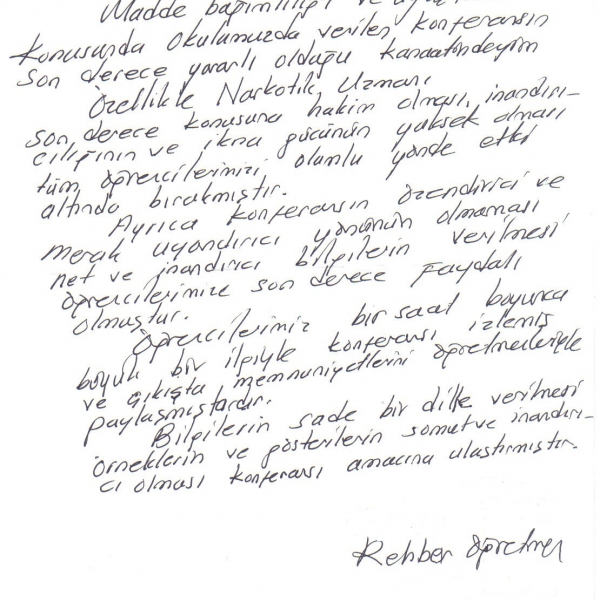 Madde bağımlılığı ve
konusunda okulumuzda verilen konferansın
son derece yararlı olduğu kanaatindeyim
Özellikle Narkotik Uzmanı
son derece konusuna hakim olması, inandırı-
cılığının ve ikna gücünün yüksek olması
tüm öğrencilerimizi olumlu yönde etki
altında bırakmıştır.
Ayrıca konferansın özendirici ve
merak uyandırıcı yönünün olmaması
net ve inandırıcı bilgilerin verilmesi
öğrencilerimize son derece faydalı
olmuştur.
Öğrencilerimiz bir saat boyunca
büyük bir ilgiyle konferansı izlemiş
ve çıkışta memnuniyetlerini öğretmenleriyle
paylaşmışlardır.
Bilgilerin sade bir dille verilmesi
örneklerin ve gösterilerin somut ve inandırı-
cı olması konferansı amacına ulaştırmıştır.
Rehber öğretmen